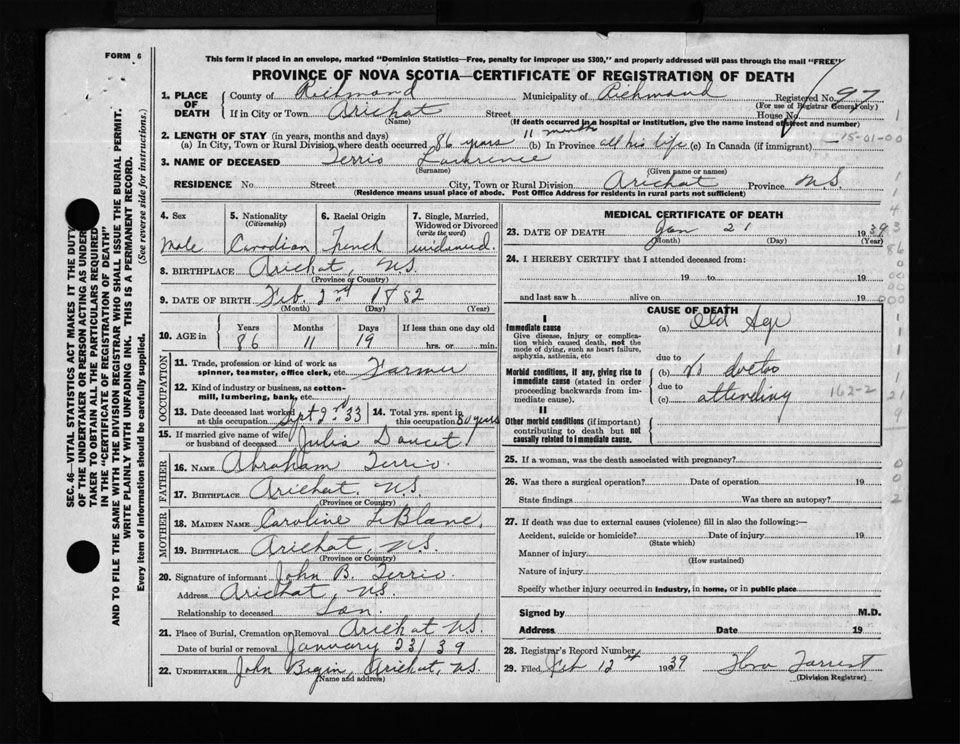 FORM 6
This form if placed in an envelope, marked "Dominion Statistics—Free, penalty for improper use $300," and properly addressed will pass through the mail "FREE"
PROVINCE OF NOVA SCOTIA—CERTIFICATE OF REGISTRATION OF DEATH
SEC. 46—VITAL STATISTICS ACT MAKES IT THE DUTY
OF THE UNDERTAKER OR PERSON ACTING AS UNDER
TAKER TO OBTAIN ALL THE PARTICULARS REQUIRED
IN THE "CERTIFICATE OF REGISTRATION OF DEATH"
AND TO FILE THE SAME WITH THE DIVISION REGISTRAR WHO SHALL ISSUE THE BURIAL PERMIT.
WRITE PLAINLY WITH UNFADING INK. THIS IS A PERMANENT RECORD.
Every item of information should be carefully supplied. (See reverse side for instructions.)
1. PLACE OF DEATH County of Richmond Municipality of Richmond Registered No. 97
(For use of Registrar General only)
If in City or Town Arichat Street House No.
(Name) (If death occurred in a hospital or institution, give the name instead of street and number)
2. LENGTH OF STAY (in years, months and days) 11 month 15-01-00
(a) In City, Town or Rural Division where death occurred 86 years (b) In Province all his life (c) In Canada (if immigrant)
3. NAME OF DECEASED Terrio Lawrence
(Surname) (Given name or names)
RESIDENCE No. Street City, Town or Rural Division Arichat Province N.S.
(Residence means usual place of abode. Post Office Address for residents in rural parts not sufficient)
4. Sex Male
5. Nationality (Citizenship) Canadian
6. Racial Origin French
7. Single, Married, Widowed or Divorced (write the word) widowed.
8. BIRTHPLACE Arichat, N.S.
(Province or Country)
9. DATE OF BIRTH Feb. 2nd 1852
(Month) (Day) (Year)
10. AGE in Years 86 Months 11 Days 19 If less than one day old hrs. or min.
OCCUPATION
11. Trade, profession or kind of work as spinner, teamster, office clerk, etc. Farmer
12. Kind of industry or business, as cotton-mill, lumbering, bank, etc.
13. Date deceased last worked at this occupation Sept 2nd 33
14. Total yrs. spent in this occupation 60 years
15. If married give name of wife or husband of deceased Julia Doucet
FATHER
16. NAME Abraham Terrio.
17. BIRTHPLACE Arichat, N.S.
(Province or Country)
MOTHER
18. MAIDEN NAME Caroline LeBlanc,
19. BIRTHPLACE Arichat, N.S.
(Province or Country)
20. Signature of informant John B. Terrio.
Address Arichat, N.S.
Relationship to deceased Son.
21. Place of Burial, Cremation or Removal Arichat N.S.
Date of burial or removal January 23/39
22. UNDERTAKER John Begin, Arichat, N.S.
(Name and address)
MEDICAL CERTIFICATE OF DEATH
23. DATE OF DEATH Jan 21 1939
(Month) (Day) (Year)
24. I HEREBY CERTIFY that I attended deceased from:
19 to 19
and last saw h alive on 19
CAUSE OF DEATH
I
Immediate cause (a) Old Age
Give disease, injury or complication which caused death, not the mode of dying, such as heart failure, asphyxia, asthenia, etc
due to
Morbid conditions, if any, giving rise to immediate cause (stated in order proceeding backwards from immediate cause). (b) No doctor
due to
(c) attending 162-2
II
Other morbid conditions (if important) contributing to death but not causally related to immediate cause.
25. If a woman, was the death associated with pregnancy?
26. Was there a surgical operation? Date of operation 19
State findings Was there an autopsy?
27. If death was due to external causes (violence) fill in also the following:—
Accident, suicide or homicide? Date of injury 19
(State which)
Manner of injury
(How sustained)
Nature of injury
Specify whether injury occurred in industry, in home, or in public place
Signed by M.D.
Address Date 19
28. Registrar's Record Number
29. Filed Feb 12 1939
(Division Registrar)